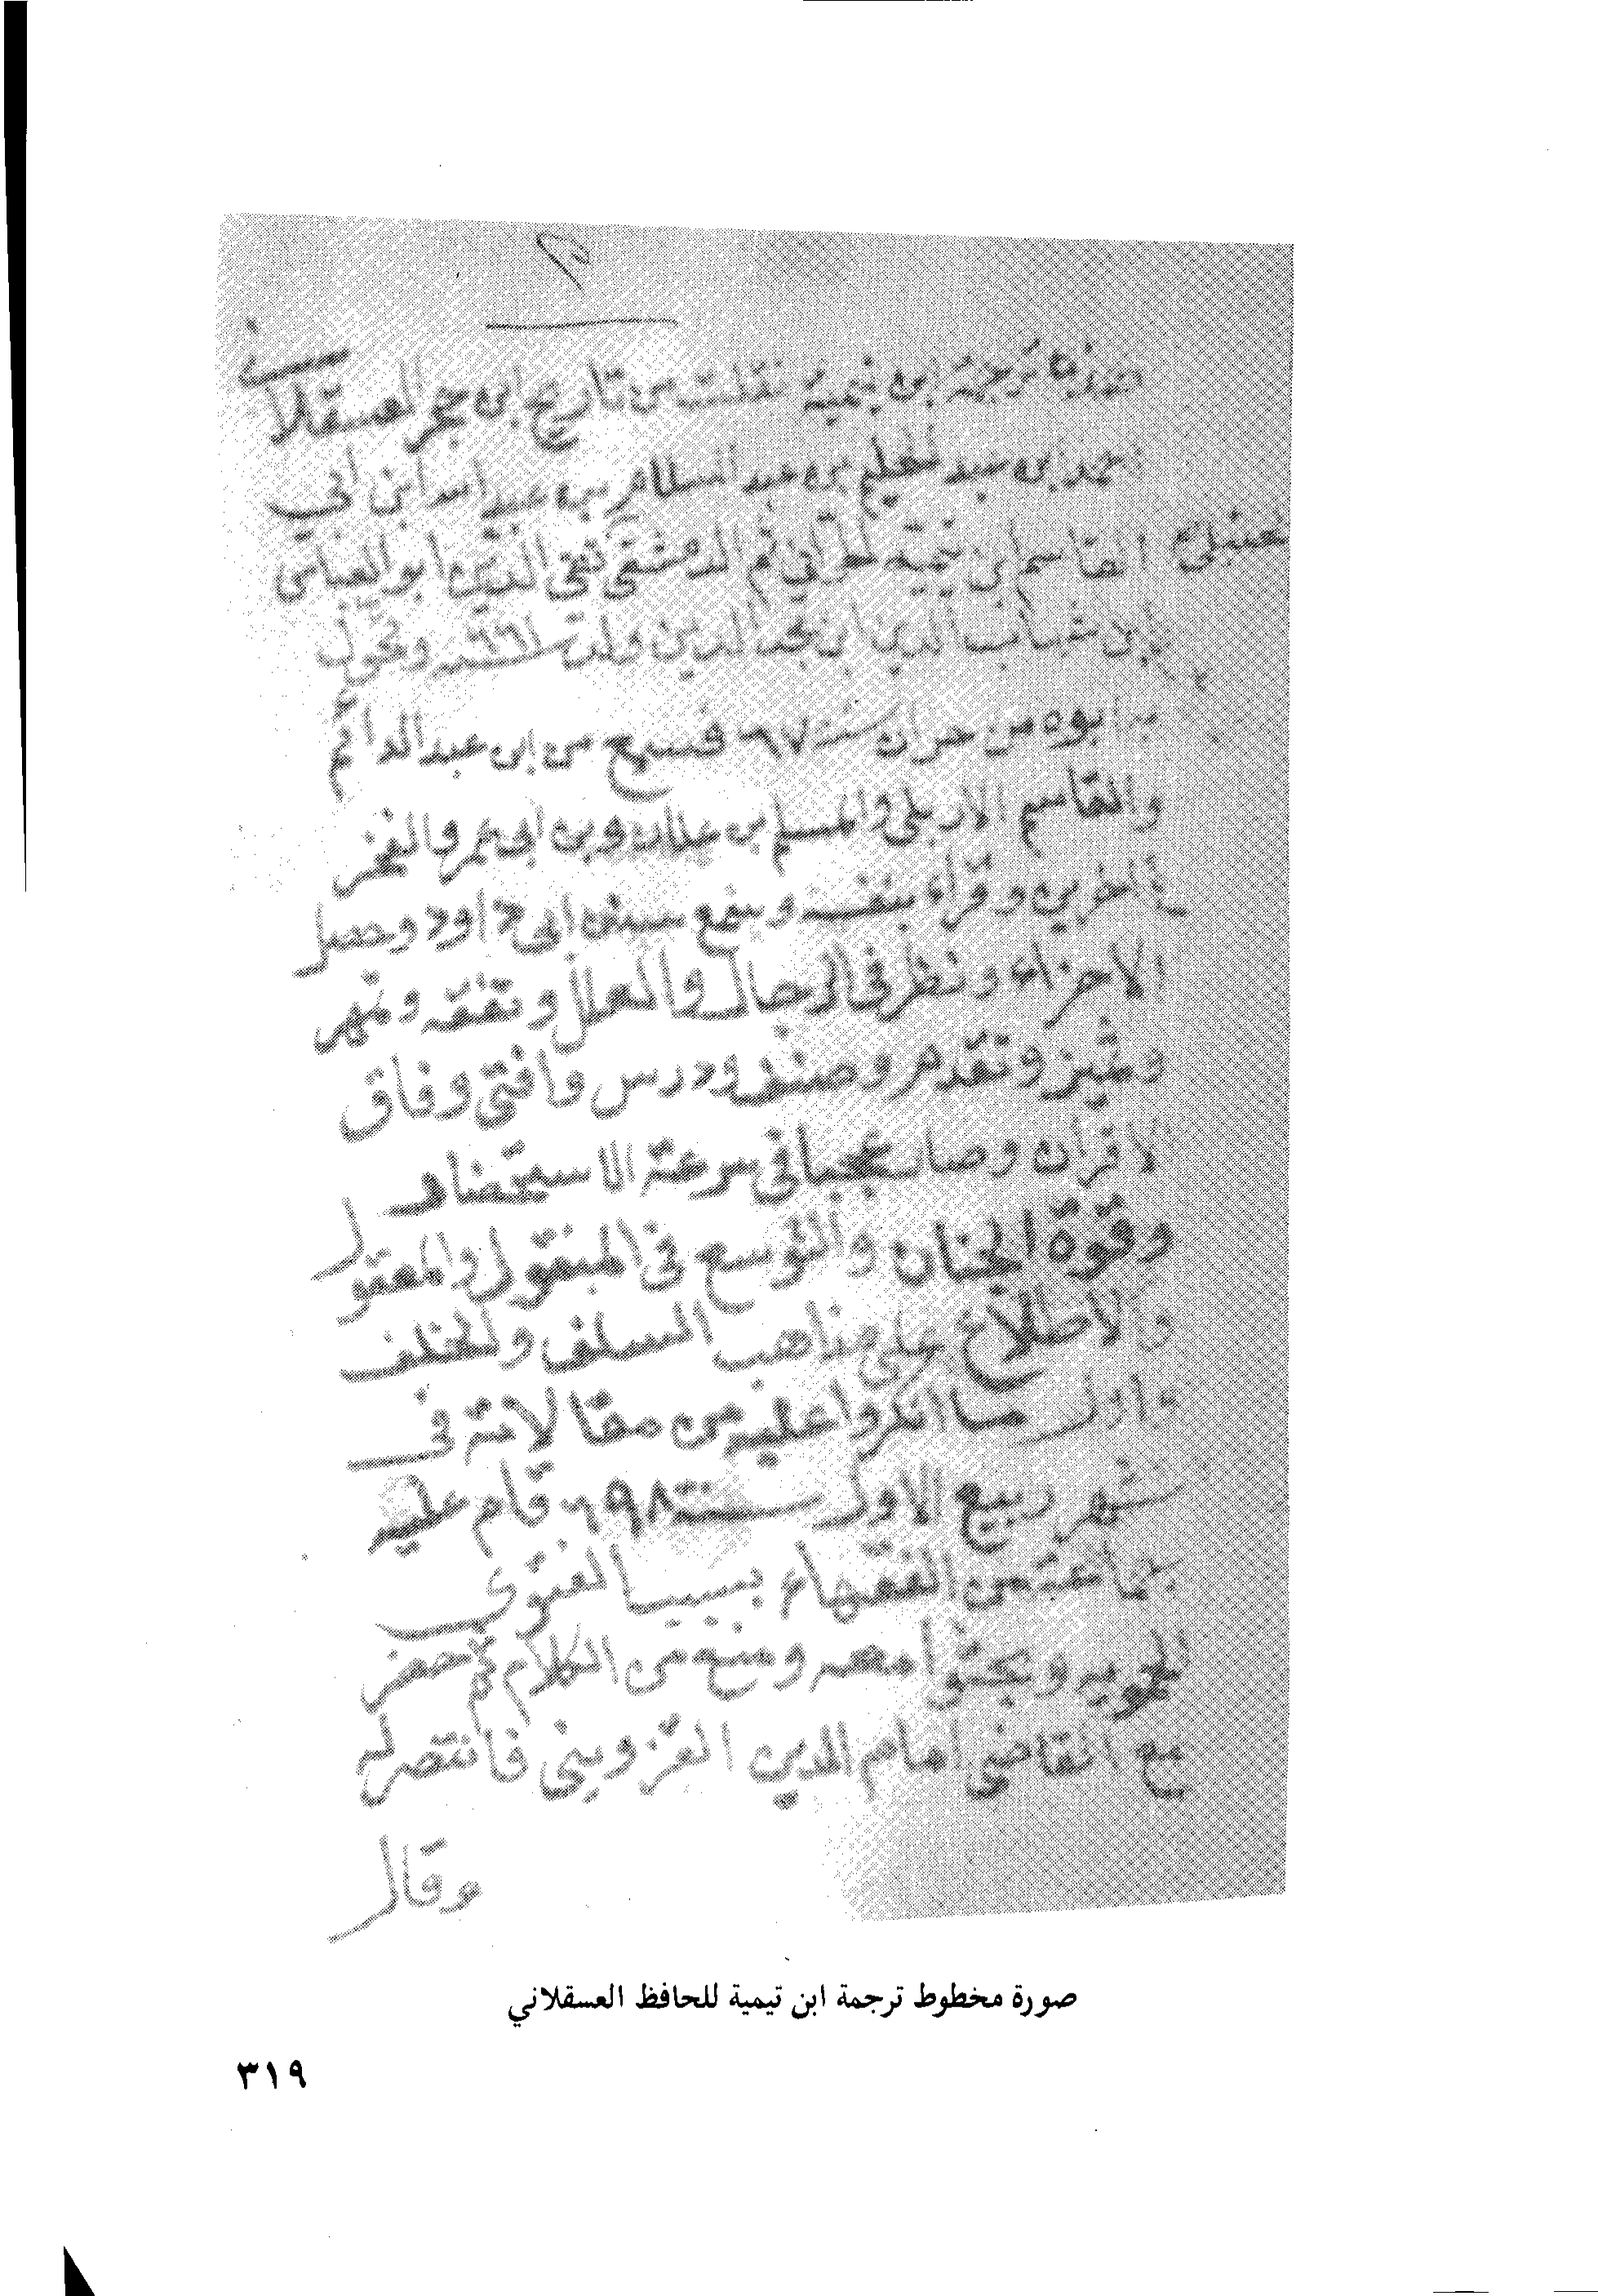 هذه ترجمة ابن تيمية نقلت من تاريخ ابن حجر العسقلاني
احمد ابن عبد الحليم بن عبد السلام بن عبد الله ابن ابي
القاسم ابن تيمية الحراني ثم الدمشقي تقي الدين ابو العباس
حنبلي
ابن شهاب الدين ابن مجد الدين ولد سنة ٦٦١ وتحول
به ابوه من حران سنة ٦٧ فسمع من ابن عبد الدائم
والقاسم الاربلي والمسلم ابن علان وبن ابي عمر والفخر
في اخرين وقراء بنفسه وسمع سنن ابي داود وحصل
الاجزاء ونظر في الرجال والعلل وتفقه وتمهر
وتميز وتقدم وصنف ودرس وافتى وفاق
الاقران وصار عجبا في سرعة الاستحضار
وقوة الجنان والتوسع في المنقول والمعقول
والاطلاع على مذاهب السلف والخلف
واول ما انكروا عليه من مقالاته في
شهر ربيع الاول سنة ٦٩٨ قام عليه
جماعة من الفقهاء بسبب الفتوى
الحمويه وبحثوا معه ومنع من الكلام ثم حضر
مع القاضي امام الدين القزويني فانتصر له
وقال
صورة مخطوط ترجمة ابن تيمية للحافظ العسقلاني
٣١٩